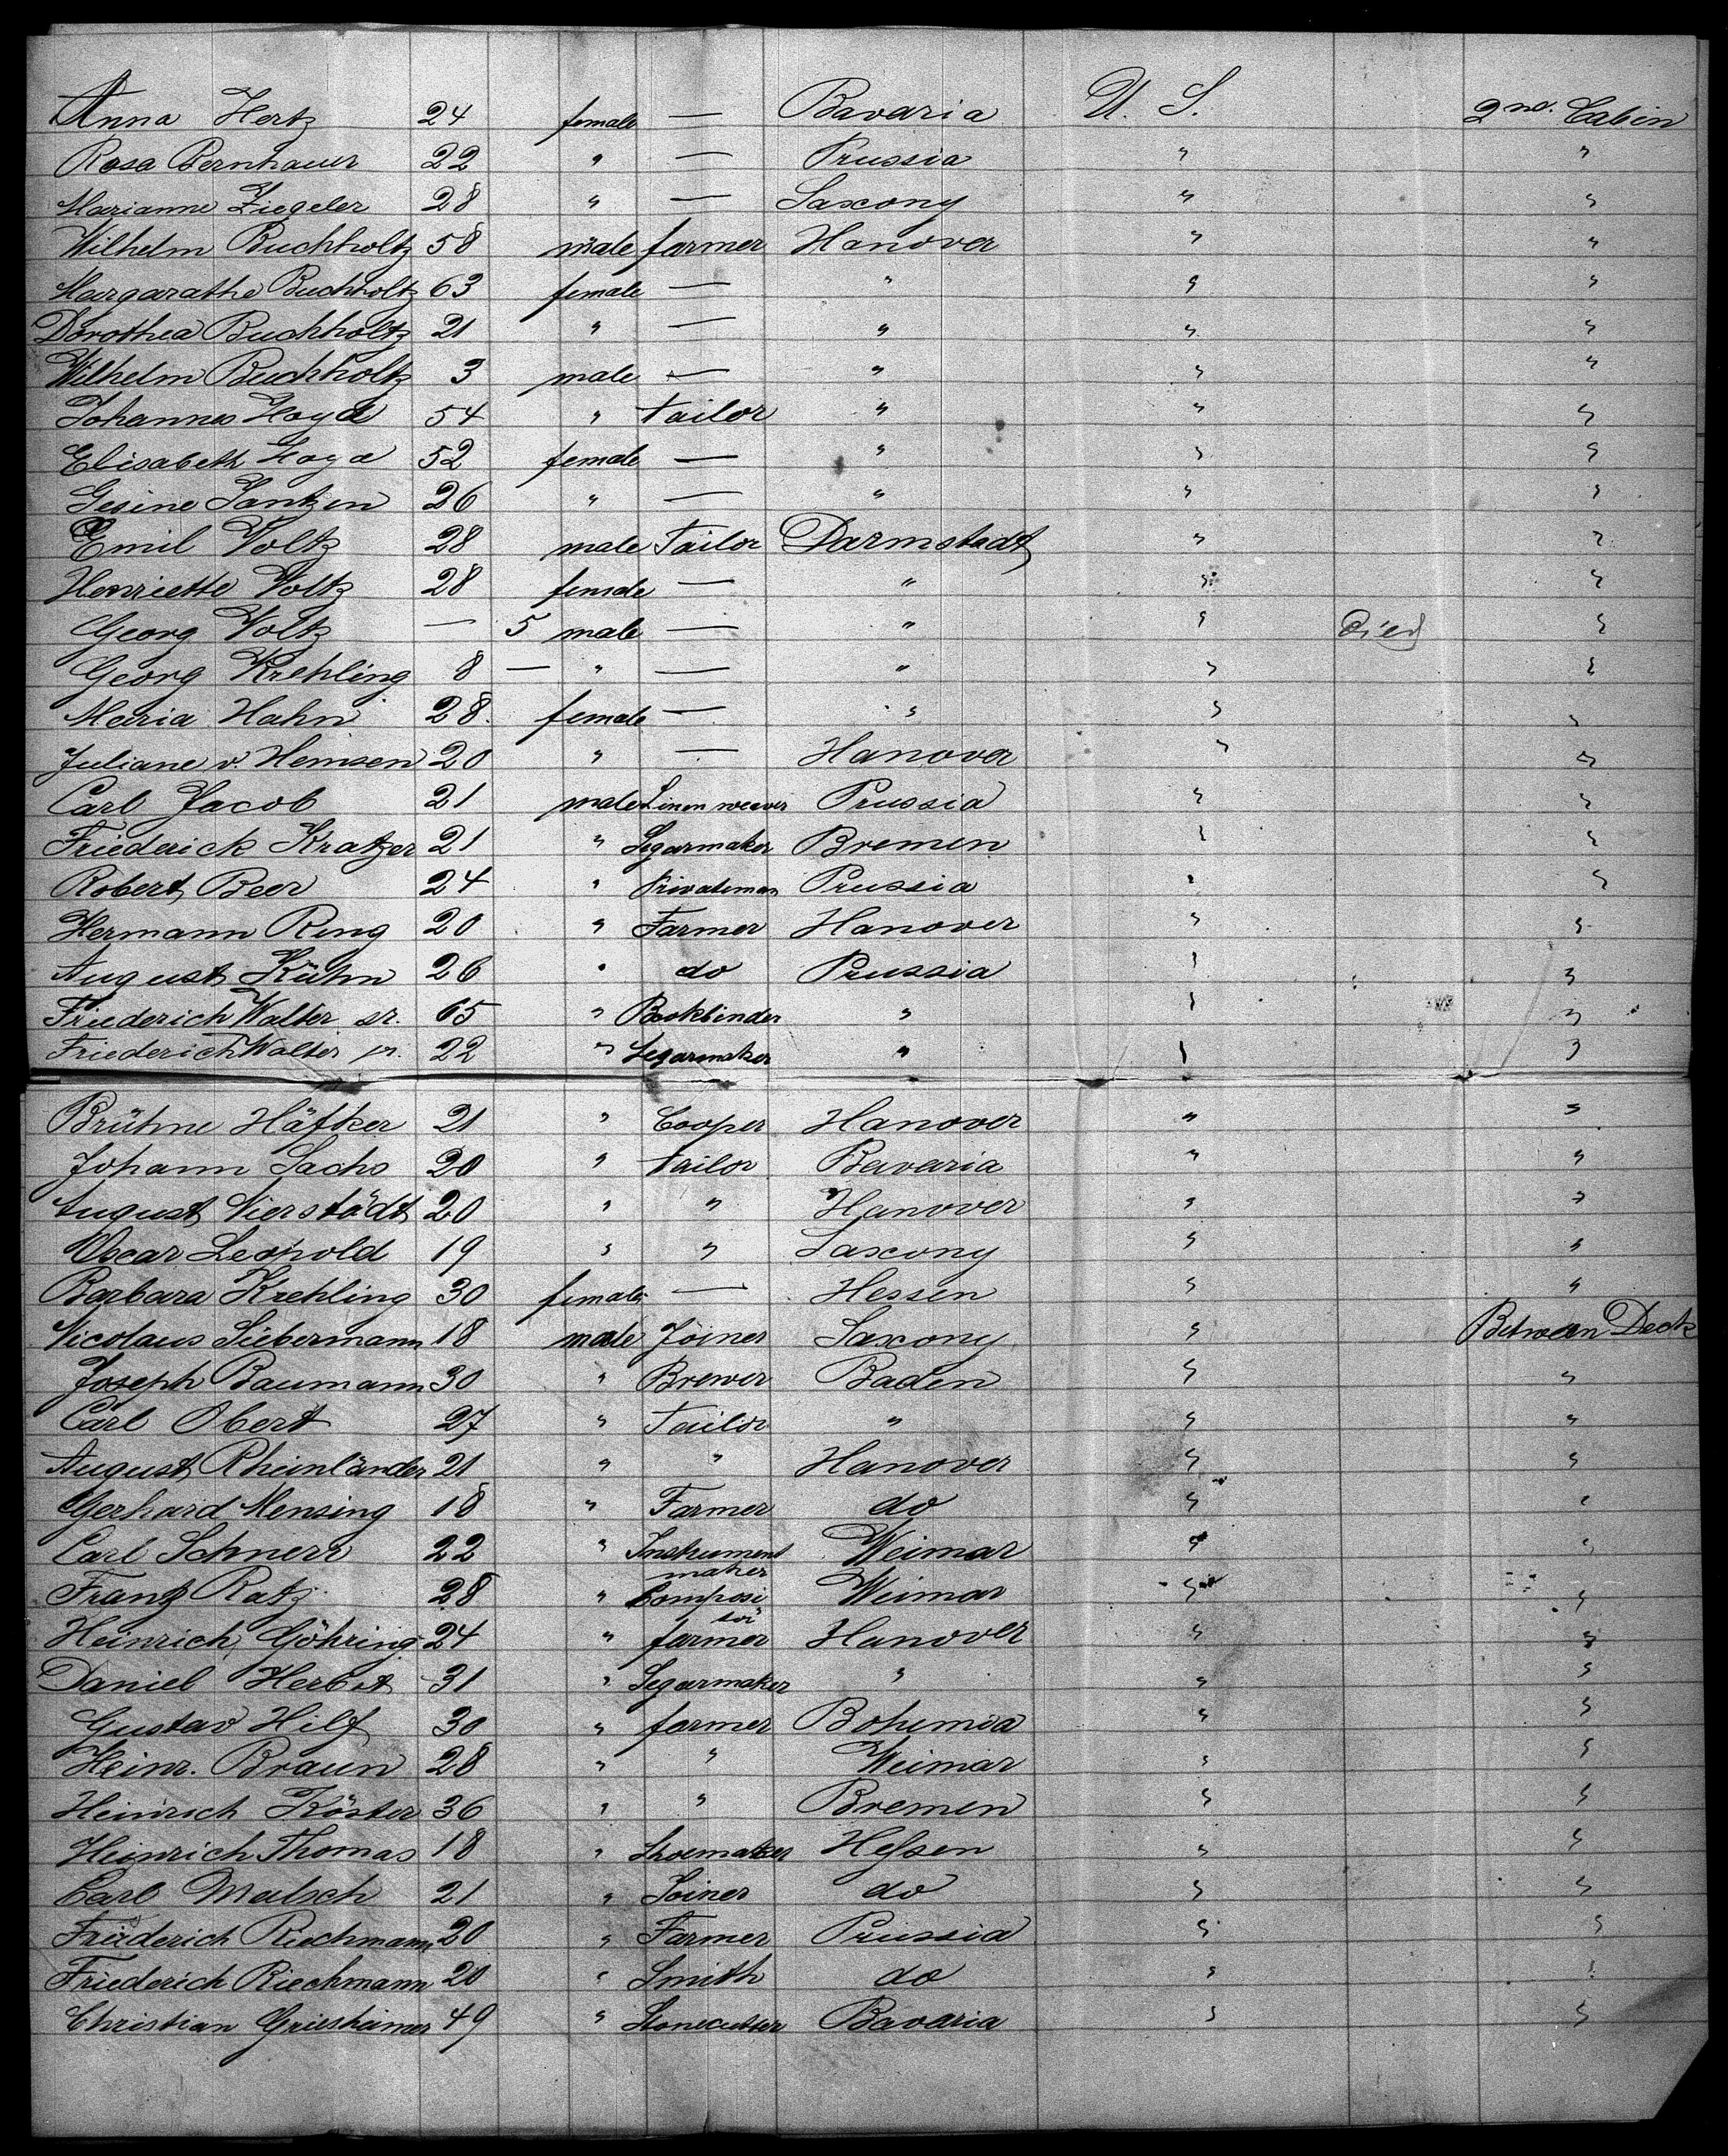 Anna Hertz 24 female — Bavaria U. S. 2nd. Cabin
Rosa Bernhauer 22 " — Prussia " "
Marianne Ziegeler 28 " — Saxony " "
Wilhelm Buchholtz 58 male farmer Hanover " "
Margarathe Buchholtz 63 female — " " "
Dorothea Buchholtz 21 " — " " "
Wilhelm Buchholtz 3 male — " " "
Johannes Hoya 54 " tailor " " "
Elisabeth Hoya 52 female — " " "
Gesine Jantzen 26 " — " " "
Emil Voltz 28 male Tailor Darmstadt " "
Henriette Voltz 28 female — " " "
Georg Voltz — 5 male — " " died "
Georg Krehling 8 — " — " " "
Maria Hahn 28. female — " " "
Juliane v. Hemsen 20 " — Hanover " "
Carl Jacob 21 male Linen weaver Prussia " "
Friederick Kratzer 21 " Segarmaker Bremen " "
Robert Beer 24 " Privateman Prussia " "
Hermann Ring 20 " Farmer Hanover " "
August Kühn 26 " do Prussia " "
Friederich Walter sr. 65 " Bookbinder " " "
Friederich Walter jr. 22 " Segarmaker " " "
Brühne Häfker 21 " Cooper Hanover " "
Johann Sachs 20 " tailor Bavaria " "
August Nierstädt 20 " " Hanover " "
Oscar Leopold 19 " " Saxony " "
Barbara Krehling 30 female — Hessen " "
Nicolaus Liebermann 18 male Joiner Saxony " Between Deck
Joseph Baumann 30 " Brewer Baden " "
Carl Obert 27 " Tailor " " "
August Rheinländer 21 " " Hanover " "
Gerhard Mensing 18 " Farmer do " "
Carl Schnerr 22 " Instrument Weimar " "
maker
Franz Ratz 28 " Composi Weimar " "
tor
Heinrich Göhring 24 " farmer Hanover " "
Daniel Herbst 31 " Segarmaker " " "
Gustav Hilf 30 " farmer Bohemia " "
Heinr. Braun 28 " " Weimar " "
Heinrich Köster 36 " " Bremen " "
Heinrich Thomas 18 " Shoemaker Hessen " "
Carl Malsch 21 " Joiner do " "
Friederich Riechmann 20 " Farmer Prussia " "
Friederich Riechmann 20 " Smith do " "
Christian Grieshaimer 49 " Stonecutter Bavaria " "